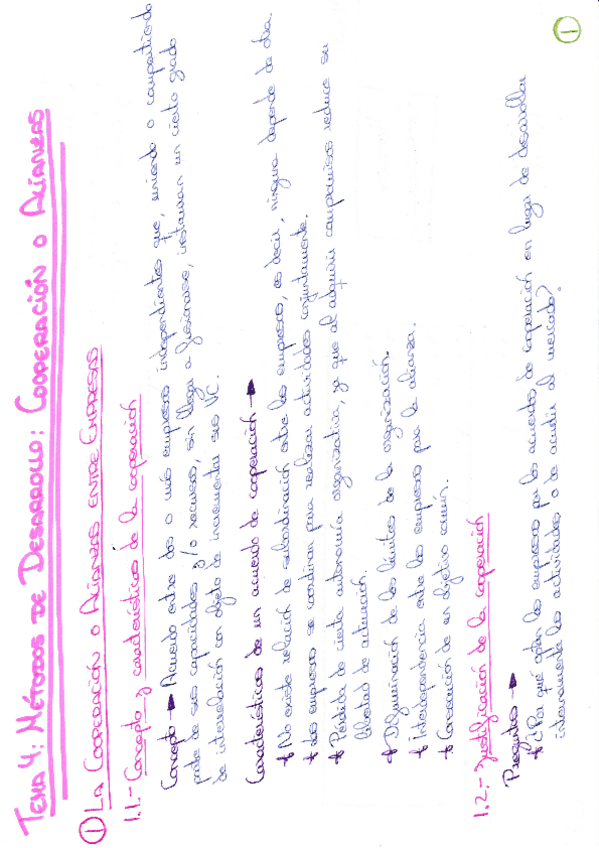 TEMA 4: MÉTODOS DE DESARROLLO: COOPERACIÓN O ALIANZAS
① LA COOPERACIÓN O ALIANZAS ENTRE EMPRESAS
1.1.- Concepto y características de la cooperación
Concepto → Acuerdo entre dos o más empresas independientes que, uniendo o compartiendo
parte de sus capacidades y/o recursos, sin llegar a fusionarse, instauran un cierto grado
de interrelación con objeto de incrementar sus VC.
Características de un acuerdo de cooperación →
+ No existe relación de subordinación entre las empresas, es decir, ninguna depende de otra.
+ Las empresas se coordinan para realizar actividades conjuntamente.
+ Pérdida de cierta autonomía organizativa, ya que al adquirir compromisos reduce su
libertad de actuación.
+ Difuminación de los límites de la organización.
+ Interdependencia entre las empresas para la alianza.
+ Consecución de un objetivo común.
1.2.- Justificación de la cooperación
Preguntas →
+ ¿Por qué optan las empresas por los acuerdos de cooperación en lugar de desarrollar
internamente las actividades o de acudir al mercado?
1